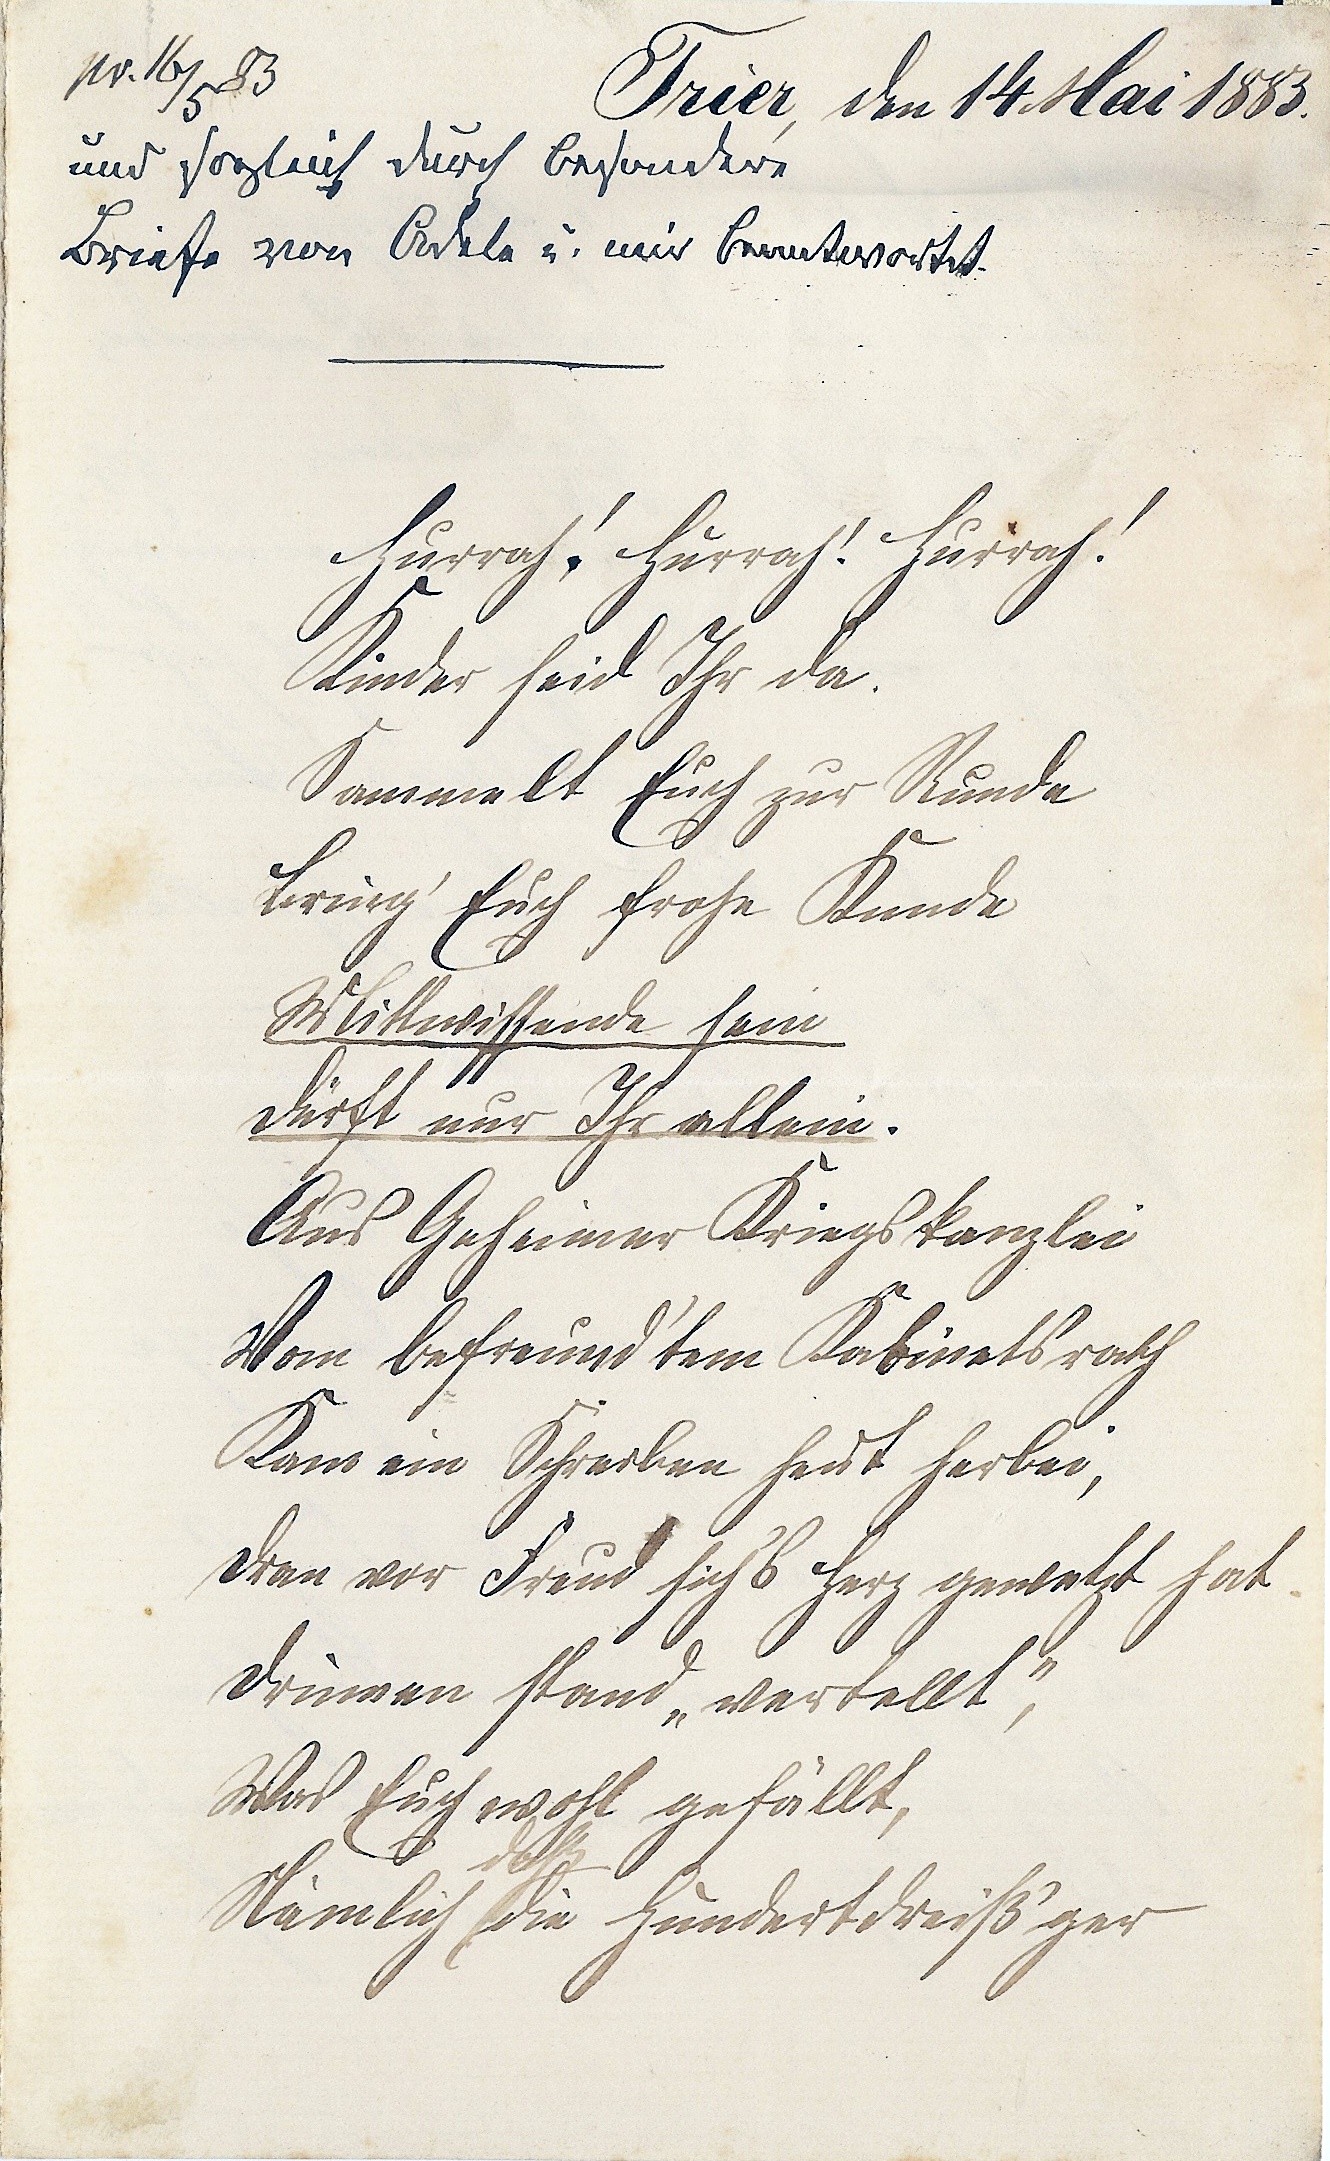 pr. 16/5 83
Trier, den 14. Mai 1883.
und sogleich durch besondere
Briefe von Adele u. mir beantwortet.
Hurrah! Hurrah! Hurrah!
Kinder seid Ihr da.
Sammelt Euch zur Runde
Bring' Euch frohe Kunde
Mitwissende sein
dürft nur Ihr allein.
Aus Geheimer Kriegskanzlei
Vom befreund'tem Kabinetsrath
Kam ein Schreiben heut herbei,
Dran vor Freud sich's Herz geweltzt hat
Drinnen stand „vertellt",
Was Euch wohl gefällt,
daß
Nämlich die Hundertdreiß'ger